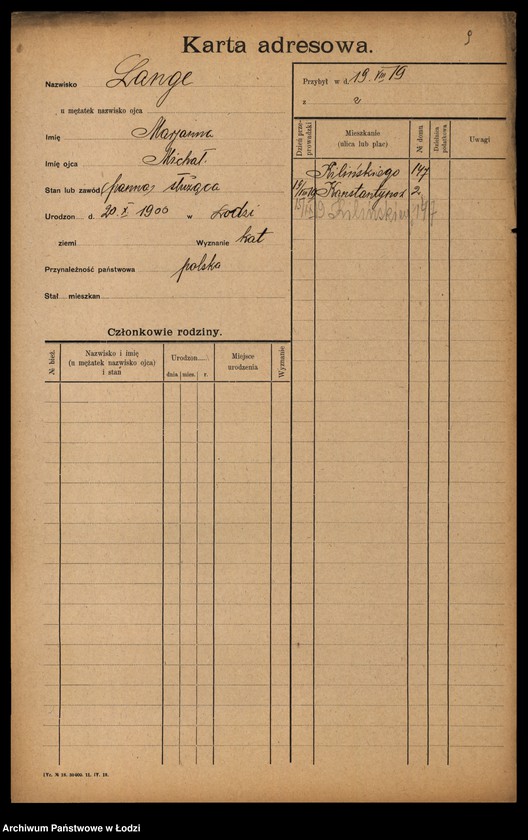 9
Karta adresowa.
Nazwisko Lange
u mężatek nazwisko ojca
Imię Marjanna
Imię ojca Michał
Stan lub zawód panna, służąca
Urodzon d. 20. X 1900 w Łodzi
ziemi Wyznanie kat
Przynależność państwowa polska
Stał mieszkan
Przybył w d. 19 VII 19
z
Dzień przeprowadzki Mieszkanie (ulica lub plac) № domu Dzielnica podatkowa Uwagi
Kilińskiego 147
19 Konstantynow 2.
Kilińskiego 147
Członkowie rodziny.
№ bież. Nazwisko i imię (u mężatek nazwisko ojca) i stan Urodzon dnia mies. r. Miejsce urodzenia Wyznanie
Archiwum Państwowe w Łodzi